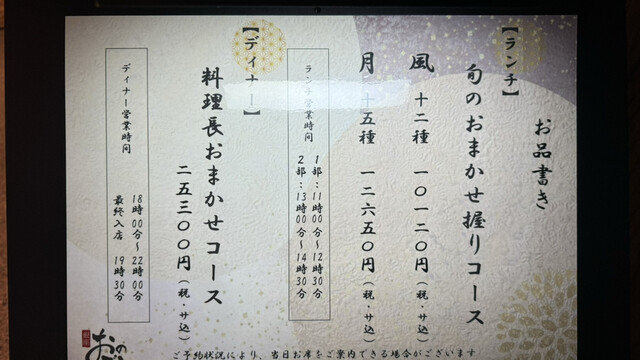 お品書き
【ランチ】
旬のおまかせ握りコース
風 十二種 一〇一二〇円(税・サ込)
月 十五種 一二六五〇円(税・サ込)
ランチ営業時間
1部:11時00分～12時30分
2部:13時00分～14時30分
【ディナー】
料理長おまかせコース
二五三〇〇円(税・サ込)
ディナー営業時間
18時00分～22時00分
最終入店 19時30分
ご予約状況により、当日お席をご案内できる場合がございます